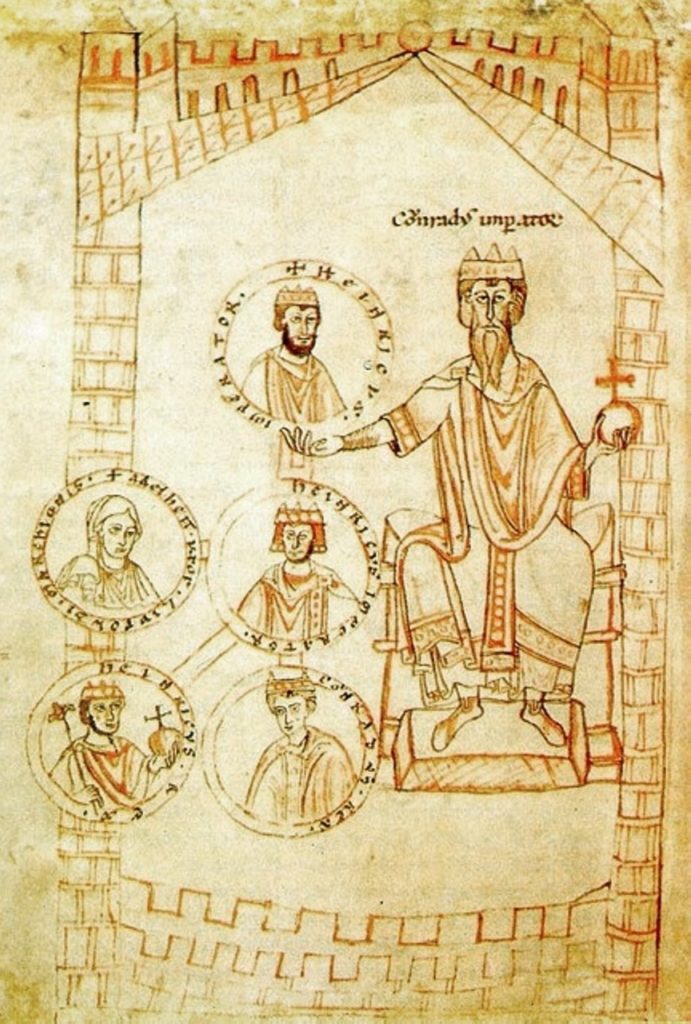 Conradus imperator
+ HEINRICVS IMPERATOR.
+ Adelheit
HEINRICVS IMPERATOR.
HEINRICVS
CONRADVS REX.